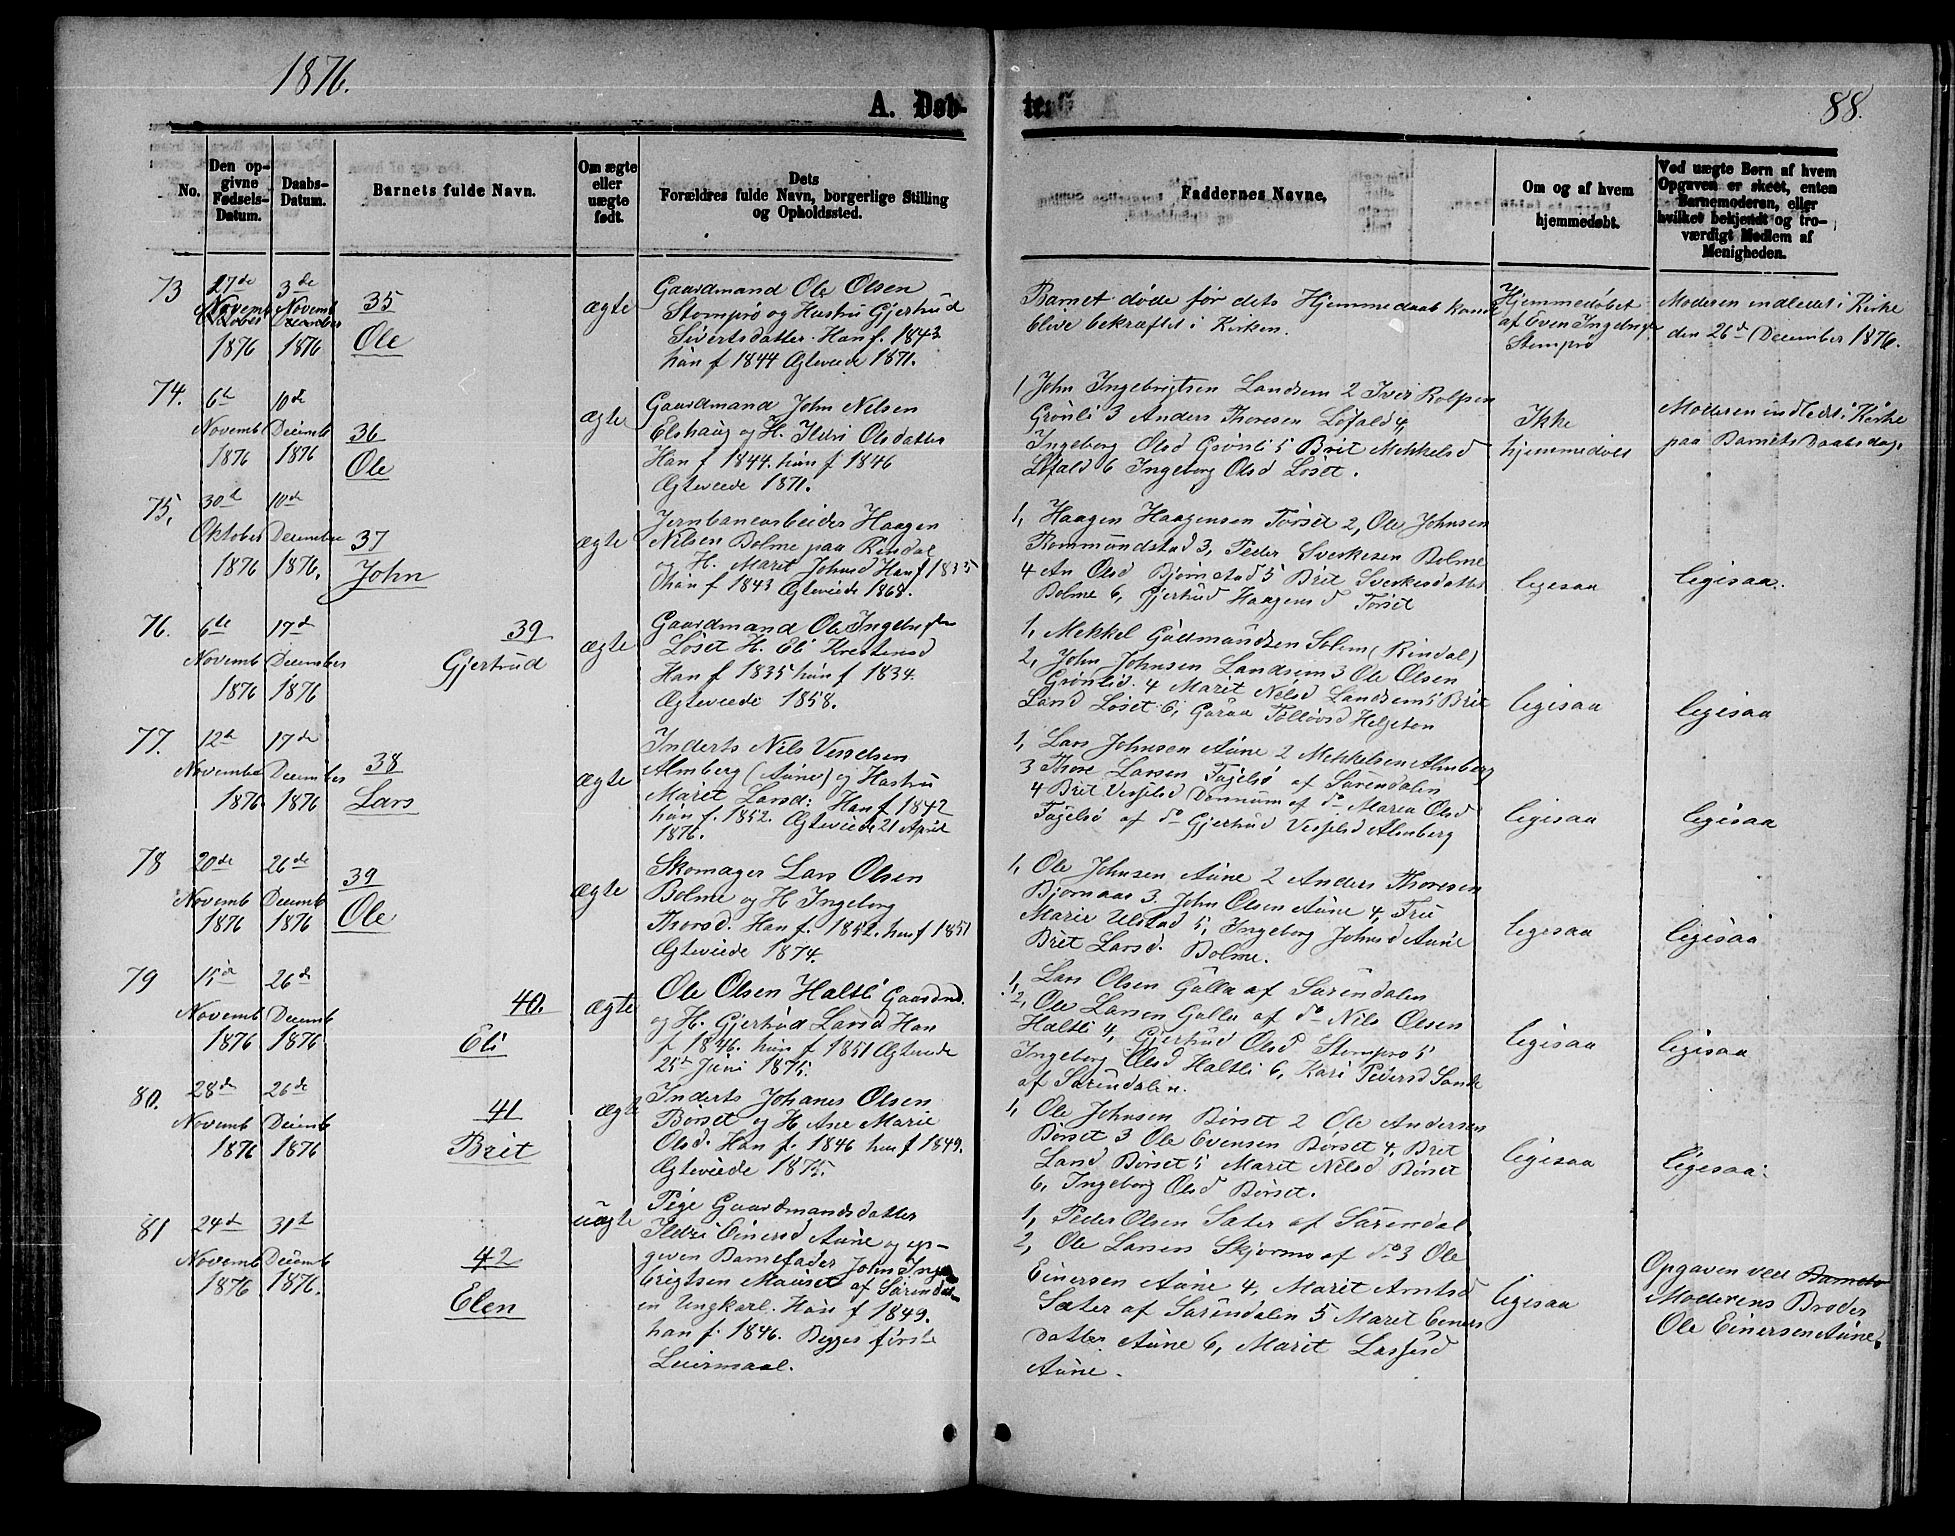 1876.
A. Døb-
te.
88.
No.
Den op-
givne
Fødsels-
Datum.
Daabs-
Datum.
Barnets fulde Navn.
Om ægte
eller
uægte
født.
Dets
Forældres fulde Navn, borgerlige Stilling
og Opholdssted.
Faddernes Navne.
Om og af hvem
hjemmedøbt.
Ved uægte Børn af hvem
Opgaven er skeet, enten
Barnemoderen, eller
hvilket bekjendt og tro-
værdigt Medlem af
Menigheden.
73
27de
Novemb
1876
3de
Novemb
1876
35
Ole
ægte
Gaardmand Ole Olsen
Stomprø og Hustru Gjertrud
Sivertsdatter. Han f. 1843
hun f 1844 Ægteviede 1871.
Barnet døde før dets Hjemmedaab kunde
blive bekræftet i Kirken.
Hjemmedøbet
af Even
Stomprø
Moderen indledet i Kirke
den 26de December 1876.
74.
6te
Novemb
1876
10de
Decemb
1876
36
Ole
ægte
Gaardmand John Nilsen
Elshaug og H. Ildri Olsdatter
Han f 1844. hun f. 1846
Ægteviede 1871.
1, John Ingebrigtsen Landsem 2 Iver Rolfsen
Grønli 3 Anders Thoresen Løfald 4,
Ingeborg Olsd Grønli 5 Brit Mekkelsd
Løfald 6 Ingeborg Olsd Løset.
Ikke
hjemmedøbt
Moderen indledet i Kirke
paa Barnets Daabsdag.
75,
30te
Oktober
1876
10de
December
1876.
37
John
ægte
Jernbanearbeider Haagen
Nilsen Bolme paa Rindal
og H. Marit Johnsd Han f 1835
hun f 1843 Ægteviede 1868.
1, Haagen Haagensen Torset 2, Ole Johnsen
Rommundstad 3, Peder Sverkesen Bolme
4 An Olsd Bjørnstad 5 Brit Sverkesdatter
Bolme 6, Gjertrud Haagensd Torset
ligesaa
ligesaa.
76.
6te
Novemb
1876
17de
December
1876
39
Gjertrud
ægte
Gaardmand Ole Ingebr
Løset H. Eli Krestensd
Han f 1835 hun f 1834.
Ægteviede 1858.
1, Mekkel Gudmundsen Solem (Rindal)
2, John Johnsen Landsem 3 Ole Olsen
Grønlid. 4 Marit Nilsd Landsem 5 Brit
Larsd Løset 6, Guraa Tolløvsd Helgeton
ligesaa
ligesaa
77.
12te
November
1876
17de
December
1876
38
Lars
ægte
Inderts Nils Vesselsen
Almberg (Aune) og Hustru
Maret Larsd: Han f. 1842
hun f. 1852. Ægteviede 21 April
1876.
1, Lars Johnsen Aune 2 Mekkelsen Almberg
3 Thore Larsen Fagelsø af Surendalen
4 Brit Vesselsd Dønnum af do Maren Olsd
Fagelsø af do Gjertrud Vesselsd Almberg
ligesaa
ligesaa
78
20de
Novemb
1876
26de
Decemb
1876
39
Ole
ægte
Skomager Lars Olsen
Bolme og H Ingeborg
Thorsd. Han f. 1852. hun f 1851
Ægteviede 1874.
1, Ole Johnsen Aune 2 Anders Thoresen
Bjørnaas 3. John Olsen Aune 4, Fru
Marie Ulstad 5, Ingeborg Johnsd Aune
Brit Larsd. Bolme.
ligesaa
ligesaa
79
15de
Novemb
1876
26de
Decemb
1876
40.
Eli
ægte
Ole Olsen Haltli Gaardmd.
og H. Gjertrud Larsd Han
f 1846. hun f 1851 Ægteviede
25de Juni 1875.
1, Lars Olsen Gulla af Surendalen
2, Ole Larsen Gulla af do Nils Olsen
Haltli 4, Gjertrud Olsd Stomprø 5
Ingeborg Olsd Haltli 6, Kari Pedersd Sande
af Surendalen.
ligesaa
ligesaa
80.
28de
Novemb
1876
26de
Decemb
1876
41
Brit
ægte
Inderts Johanes Olsen
Børset og H Ane Marie
Olsd. Han f. 1846 hun f 1849.
Ægteviede 1875.
1, Ole Johnsen Børset 2 Ole Andersen
Børset 3 Ole Evensen Børset 4, Brit
Larsd Børset 5 Marit Nilsd Børset
6, Ingeborg Olsd Børset.
ligesaa
ligesaa.
81
24de
Novemb
1876
31te
Decemb
1876.
42
Elen
uægte
Pige Gaardmandsdatter
Ildri Einersd Aune og op-
given Barnefader John Inge
brigtsen Mauset af Surendal-
en Ungkarl. Hun f 1849.
han f. 1846. Begges første
Leiermaal.
1, Peder Olsen Sæter af Surendal
2, Ole Larsen Skjermo af do 3 Ole
Einersen Aune 4, Marit Arntsd
Sæter af Surendalen 5 Maret Einers
datter Aune 6, Marit Lassesd
Aune.
ligesaa
Opgaven ved Barnets
Moderens Broder
Ole Einersen Aune.